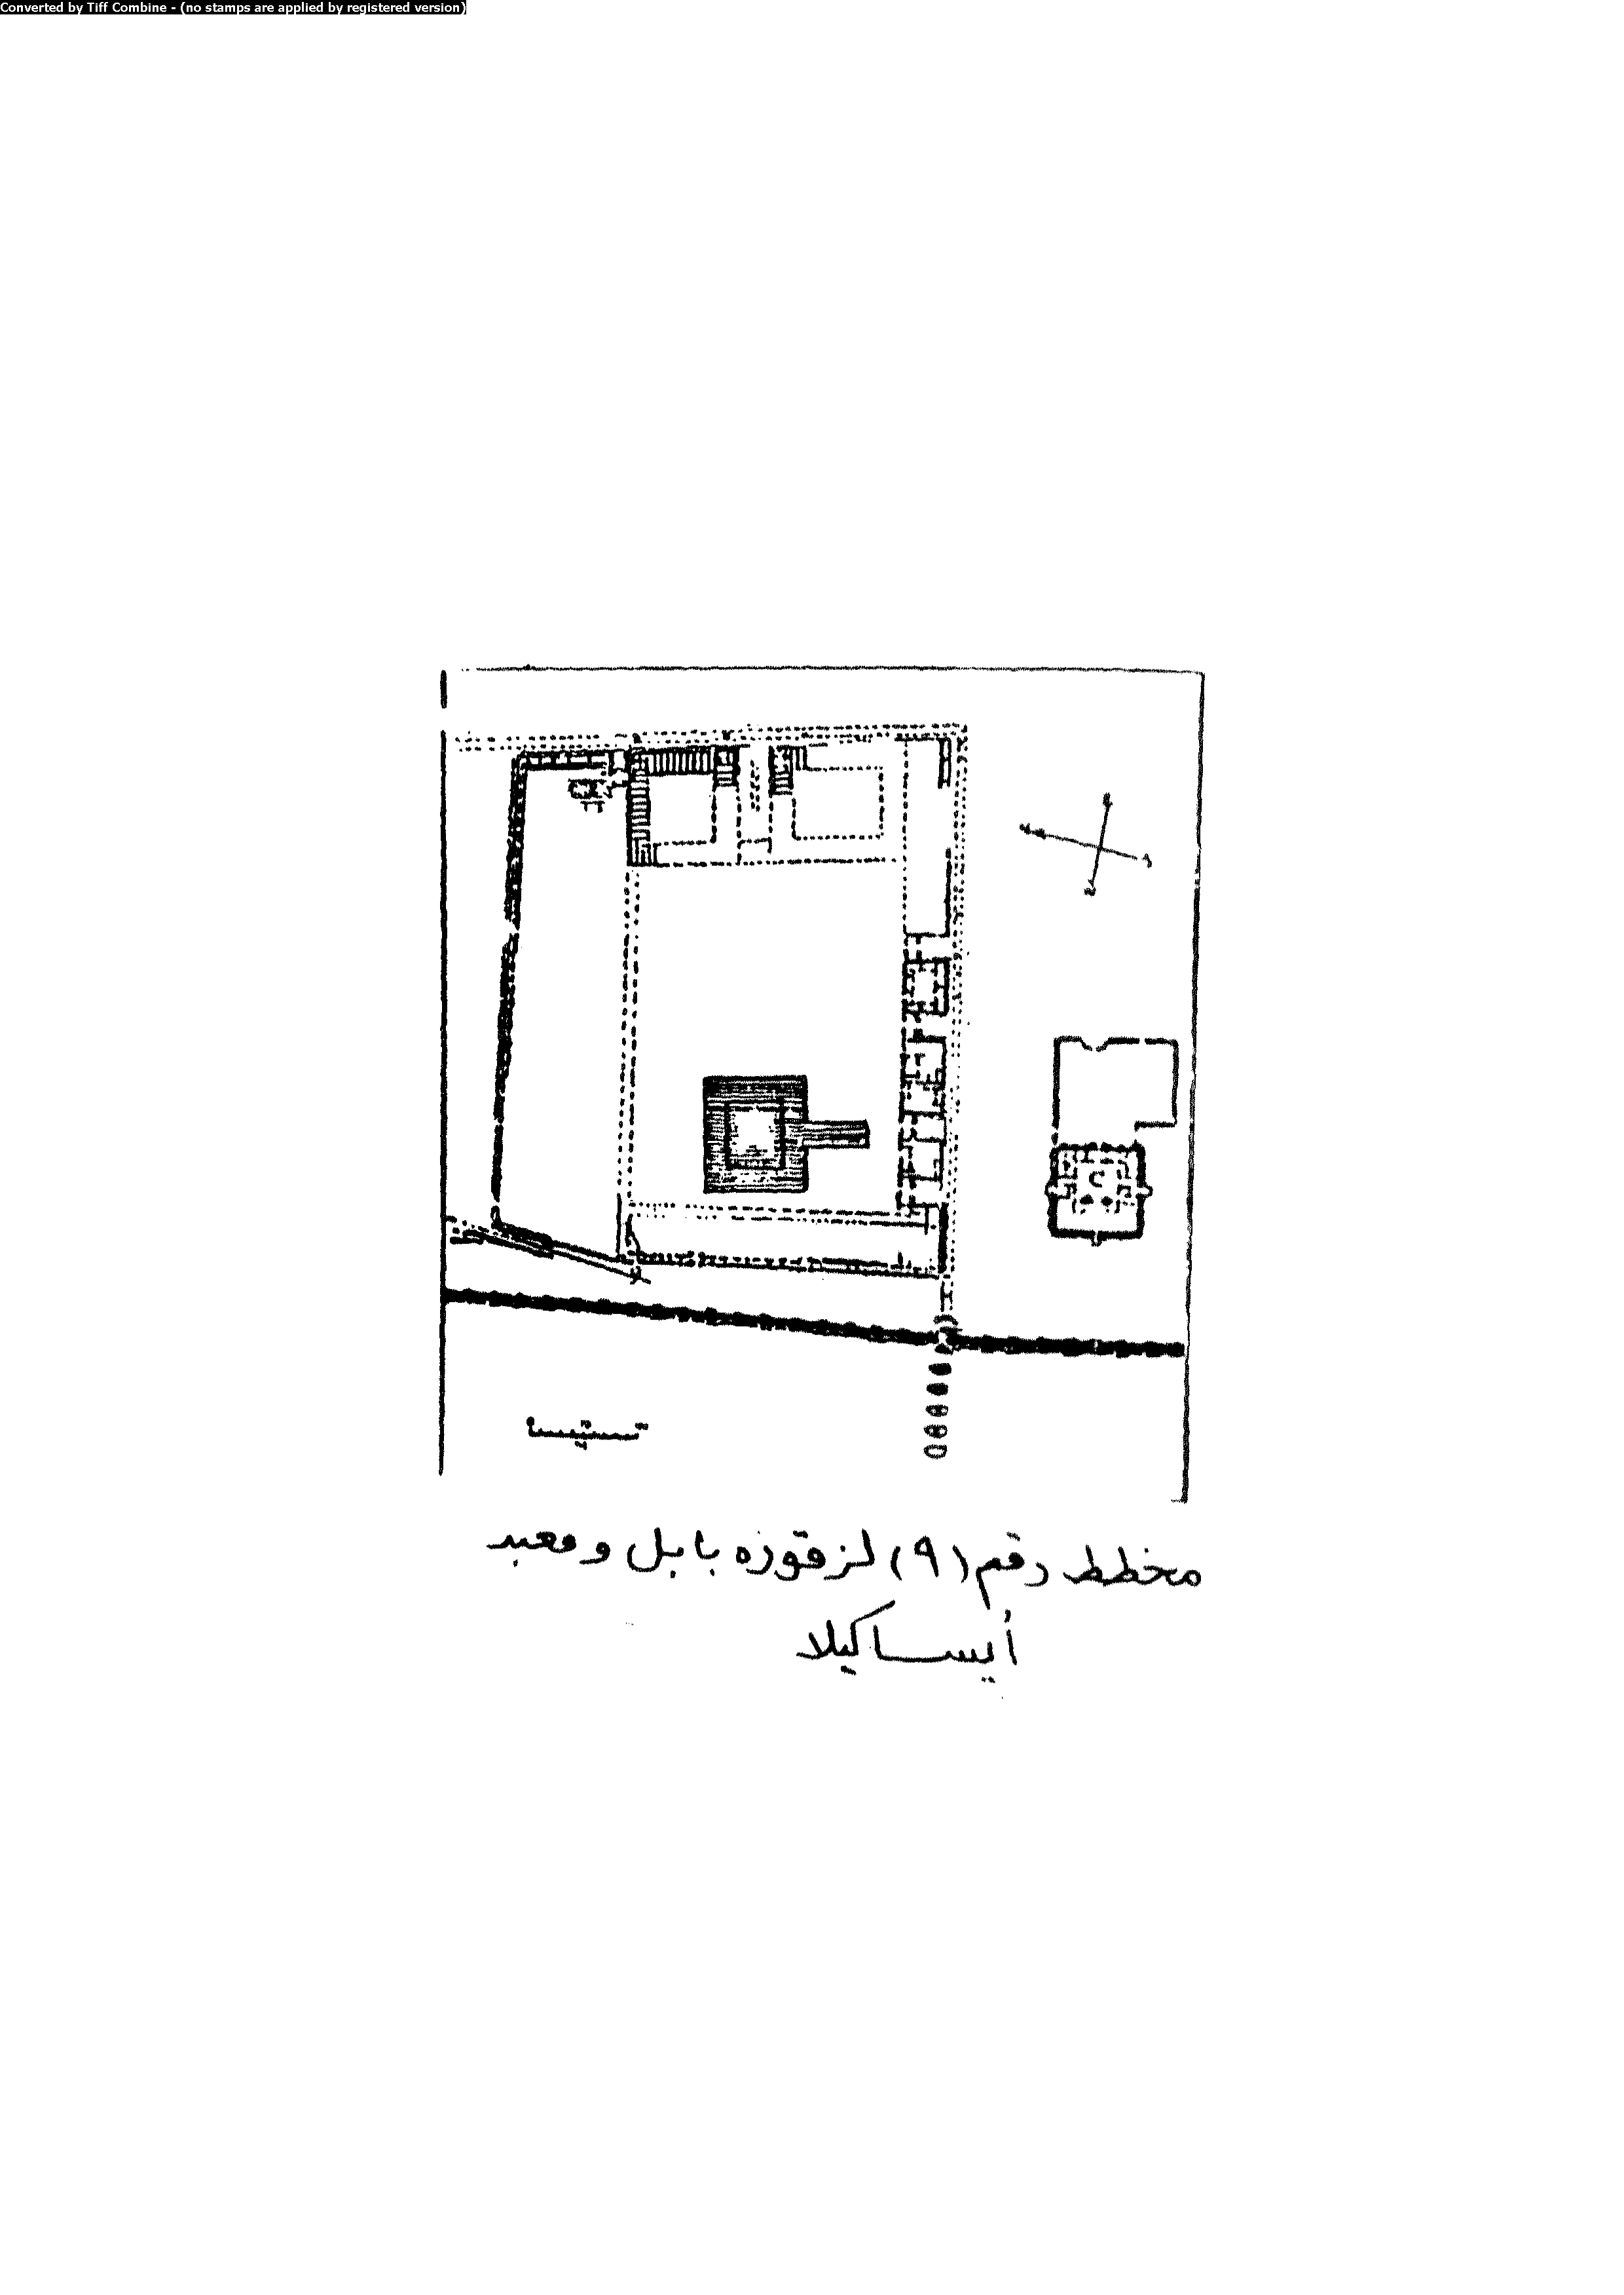 Converted by Tiff Combine - (no stamps are applied by registered version)
مخطط رقم (٩) لزقوزه بابل و معبد
أيساكيلا